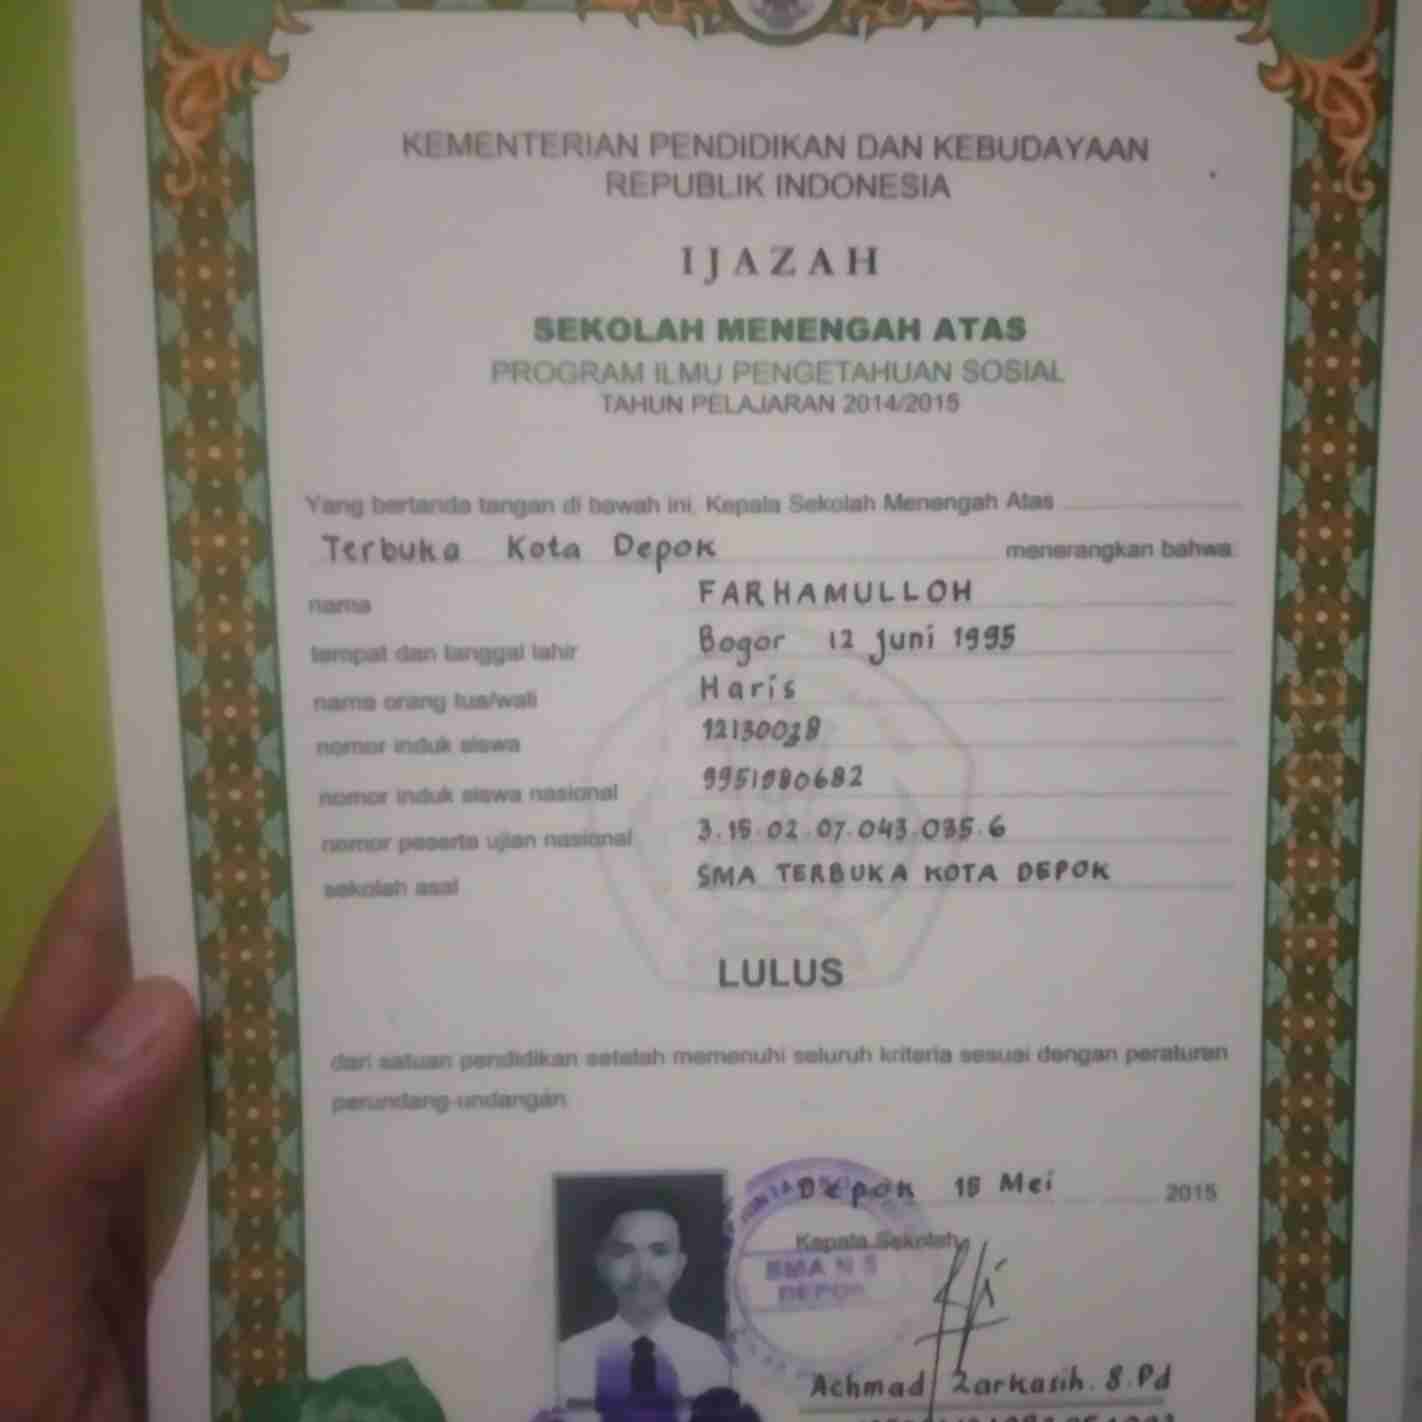 KEMENTERIAN PENDIDIKAN DAN KEBUDAYAAN
REPUBLIK INDONESIA
IJAZAH
SEKOLAH MENENGAH ATAS
PROGRAM ILMU PENGETAHUAN SOSIAL
TAHUN PELAJARAN 2014/2015
Yang bertanda tangan di bawah ini, Kepala Sekolah Menengah Atas
Terbuka Kota Depok menerangkan bahwa:
nama FARHAMULLOH
tempat dan tanggal lahir Bogor 12 Juni 1995
nama orang tua/wali Haris
nomor induk siswa
nomor induk siswa nasional 9951980682
nomor peserta ujian nasional 3.15.02.07.043.035.6
sekolah asal SMA TERBUKA KOTA DEPOK
LULUS
dari satuan pendidikan setelah memenuhi seluruh kriteria sesuai dengan peraturan
perundang-undangan.
Depok 15 Mei 2015
Kepala Sekolah,
SMA N 5
DEPOK
Achmad Zarkasih. S.Pd